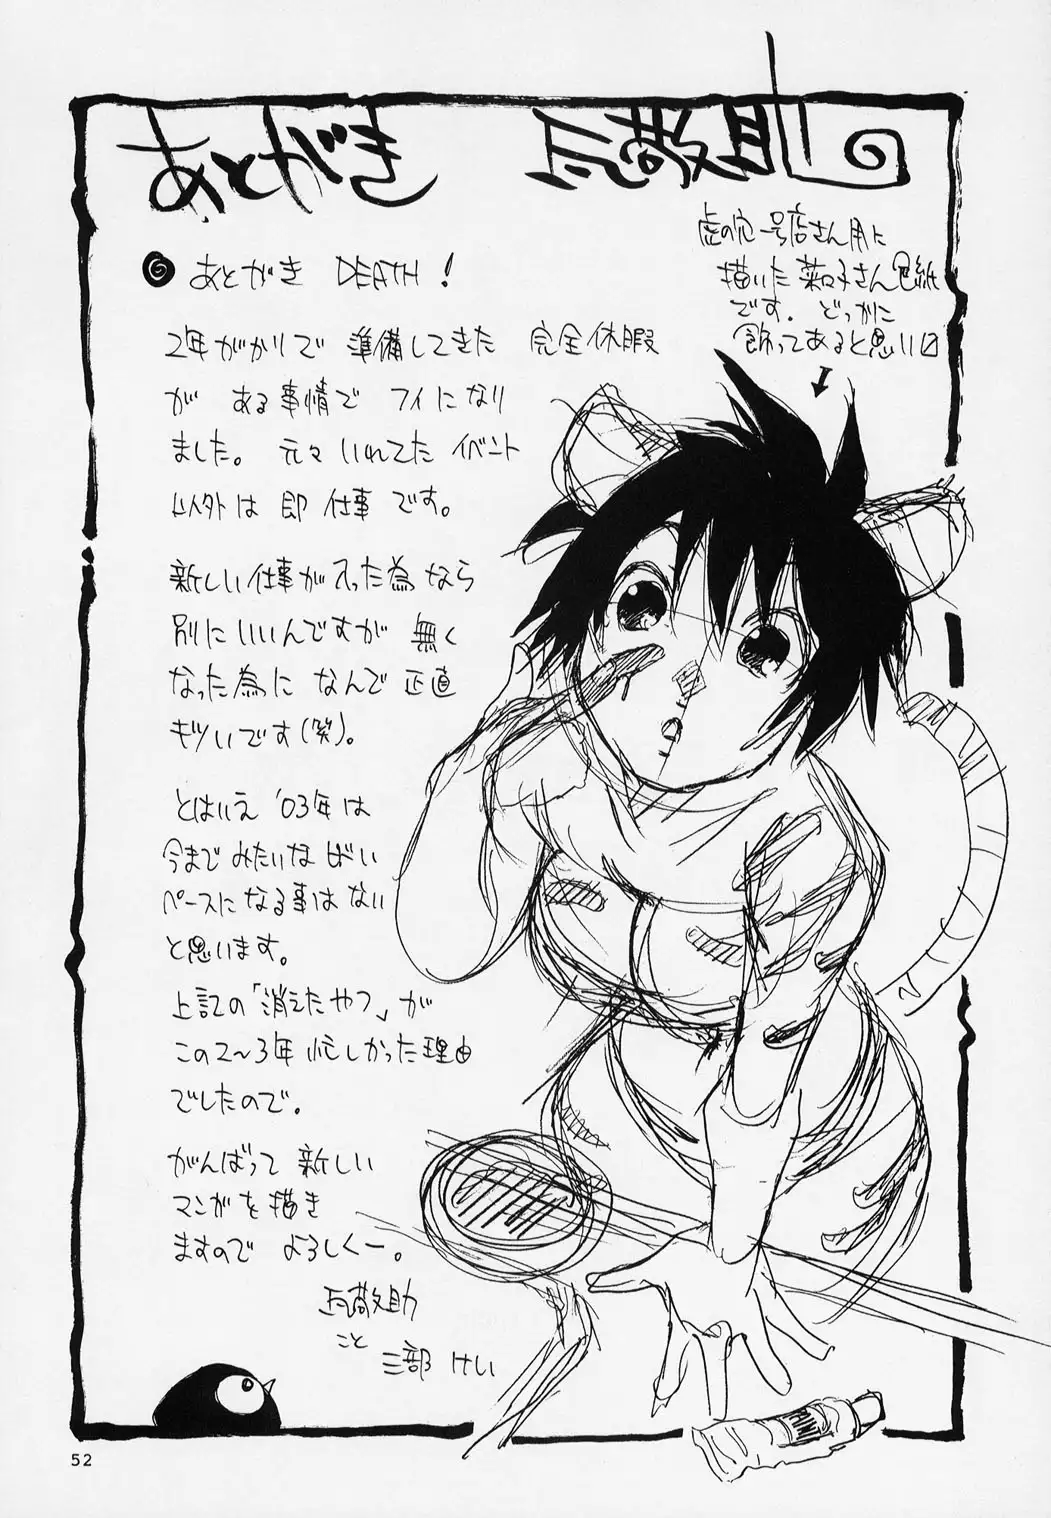 あとがき 瓦敬助
虎の穴一号店さん用に
描いた菜々子さん色紙
です. どっかに
飾ってあると思い〼
↓
あとがき DEATH!
2年がかりで 準備してきた 完全休暇
が ある事情で フイになり
ました。 元々いれてた イベント
以外は 即 仕事 です。
新しい仕事が入った為なら
別にいいんですが 無く
なった為に なんで 正直
キツいです(笑)。
とはいえ '03年は
今まで みたいな ばい
ペースに なる事は ない
と思います。
上記の「消えたやつ」が
この2〜3年 忙しかった理由
でしたので。
がんばって 新しい
マンガを 描き
ますので よろしくー。
瓦敬助
こと
三部 けい
52